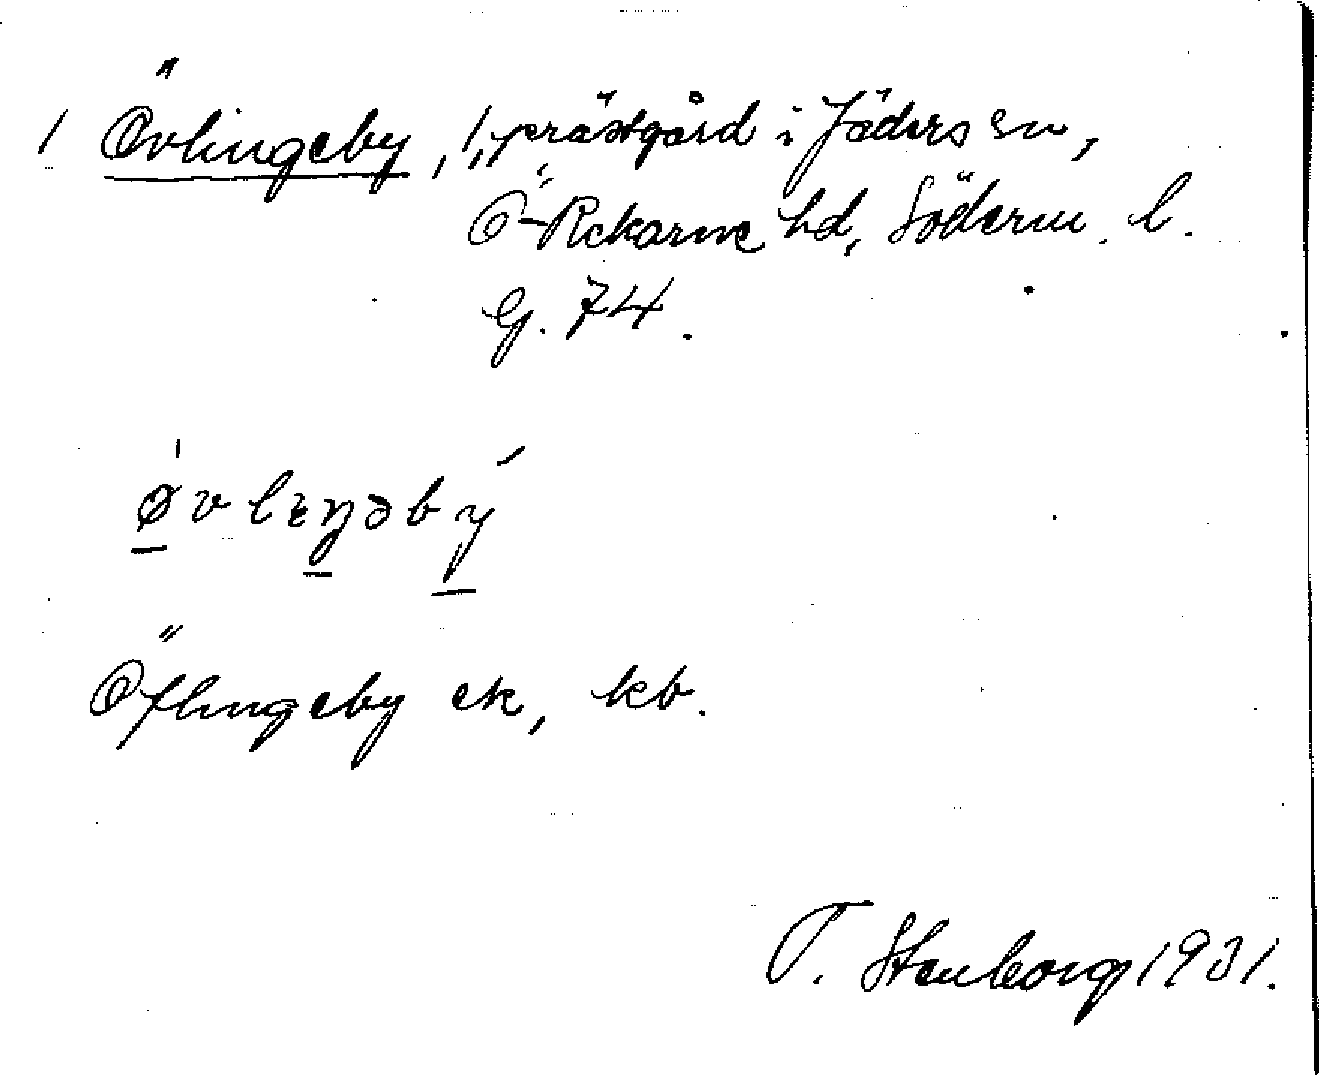 1 Övlingeby, 1, prästgård i Jäders sn,
Ö-Rekarne hd, Söderm. l.
G. 74.
øvlıŋəbý
Öflingeby ek, kb.
T. Stenborg 1931.